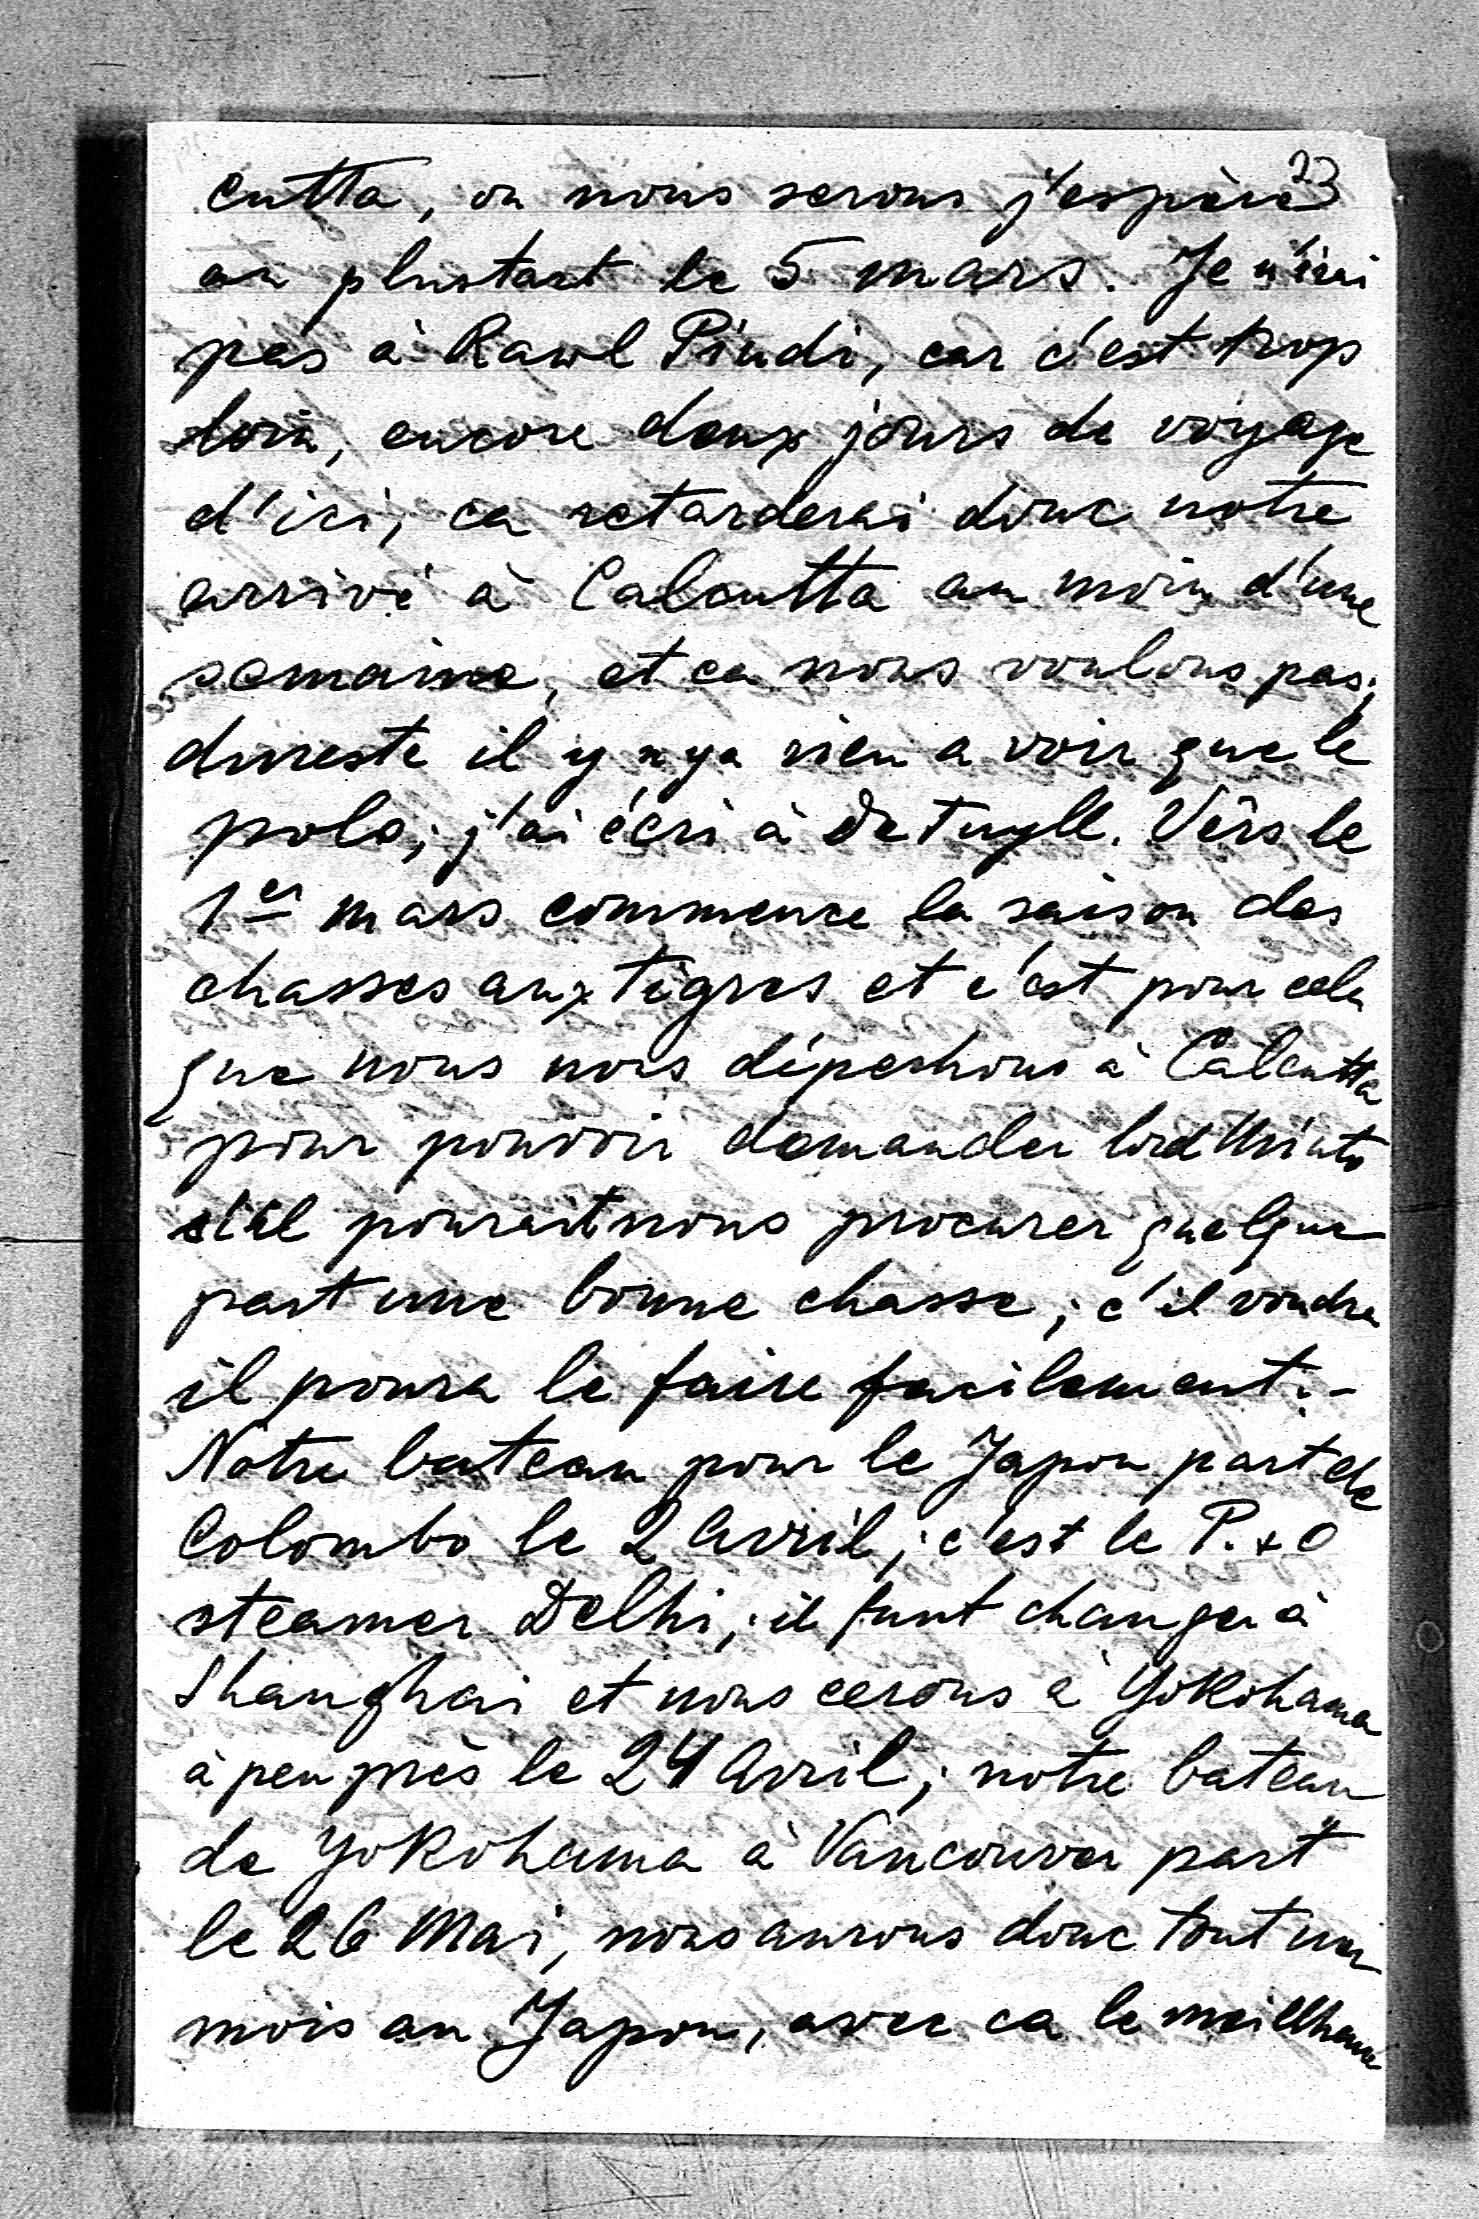 23
cutta, ou nous serons j'espère
au plustart le 5 mars. Je n'irai
pas à Rawl Pindi, car c'est trop
loin, encore deux jours de voyage
d'ici, ca retarderai donc notre
arrivé à Calcutta au moin d'une
semaine, et ca nous voulons pas;
dureste il y n'ya rien a voir que le
polo; j'ai écri à de Tuyll. Vers le
1er mars commence la saison des
chasses aux tigres et c'est pour cela
que nous nous dépechons à Calcutta
pour pouvoir demander lord Minto
s'il pourait nous procurer quelque
part une bonne chasse; c'il voudra
il poura le faire facilement.-
Notre bateau pour le Japon part de
Colombo le 2 Avril; c'est le P. & O
steamer Delhi; il faut changer à
Shanghai et nous cerons à Yokohama
à peu près le 24 Avril; notre bateau
de Yokohama à Vancouver part
le 26 Mai, nous aurons donc tout un
mois au Japon, avec ca le meillheur